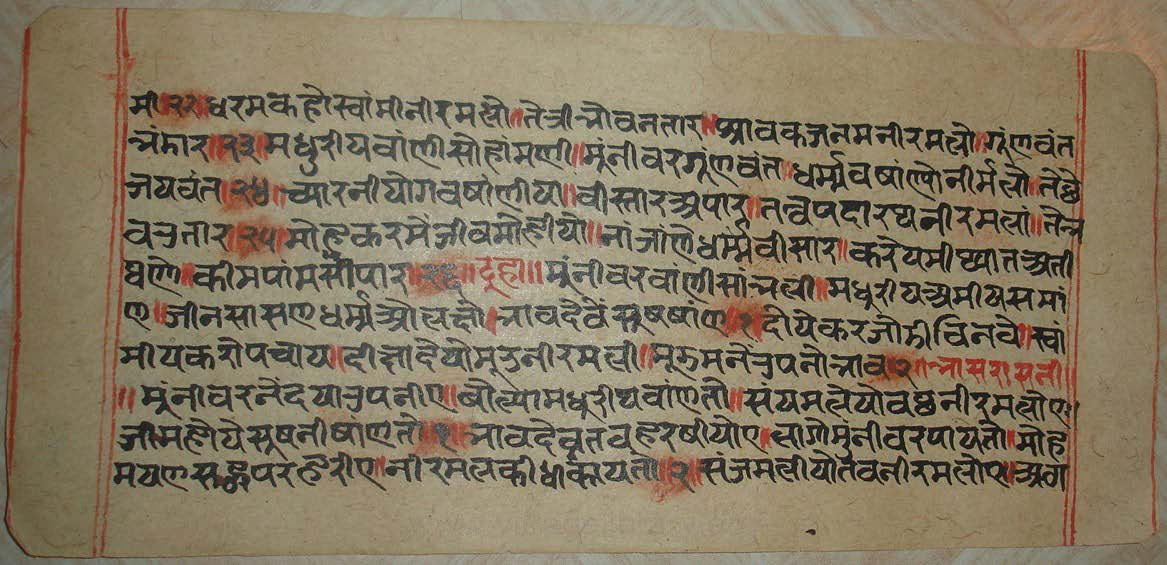 मी॥२२॥धरमकहोस्वांमीनीरमलो॥तेत्रीभोवनतार॥श्रावकजनमनीरमलो॥गुंणवंत
भंडार॥२३॥मधुरीयवांणीसोहांमणी॥मुंनीवरगुंणवंत॥धर्म्मवषांणोनीर्मलो॥
जयवंत॥२४॥च्यारनीयोगवषांणीया॥वीस्तारअपार॥तत्वपदारथनीरमलां॥तेभ
वउतार॥२५॥मोहकरमेंजीवमोहीयो॥नांजांणेधर्म्मवीसार॥करेयमीथ्यातअती
घणो॥कीमपांमसीपार॥२६॥दूहा॥मुंनीवरवांणीसांभली॥मधुरीयअमीयसमां
ण॥जीनसासणधर्म्मओलह्यो॥भावदेवेंसुषषांण॥१॥दोयेकरजोडीविनवे॥स्वां
मीयकरोपसाय॥दीक्षादेयोमुझनीरमली॥मुझमनेंउपनोभाव॥२॥भासरासनी॥
॥मुंनीवरनेंदयाउपनीए॥बोल्यामधुरीयवांणतो॥संयमलेयोवछनीरमलोए॥
जीमहोयेसुषनीषांणतो॥१॥भावदेवतवहरषीयोए॥लागोमुंनीवरपायतो॥मोह
मयणसहुपरहरीए॥नीरमलकीधीकायतो॥२॥संजमलीयोतवनीरमलोए॥